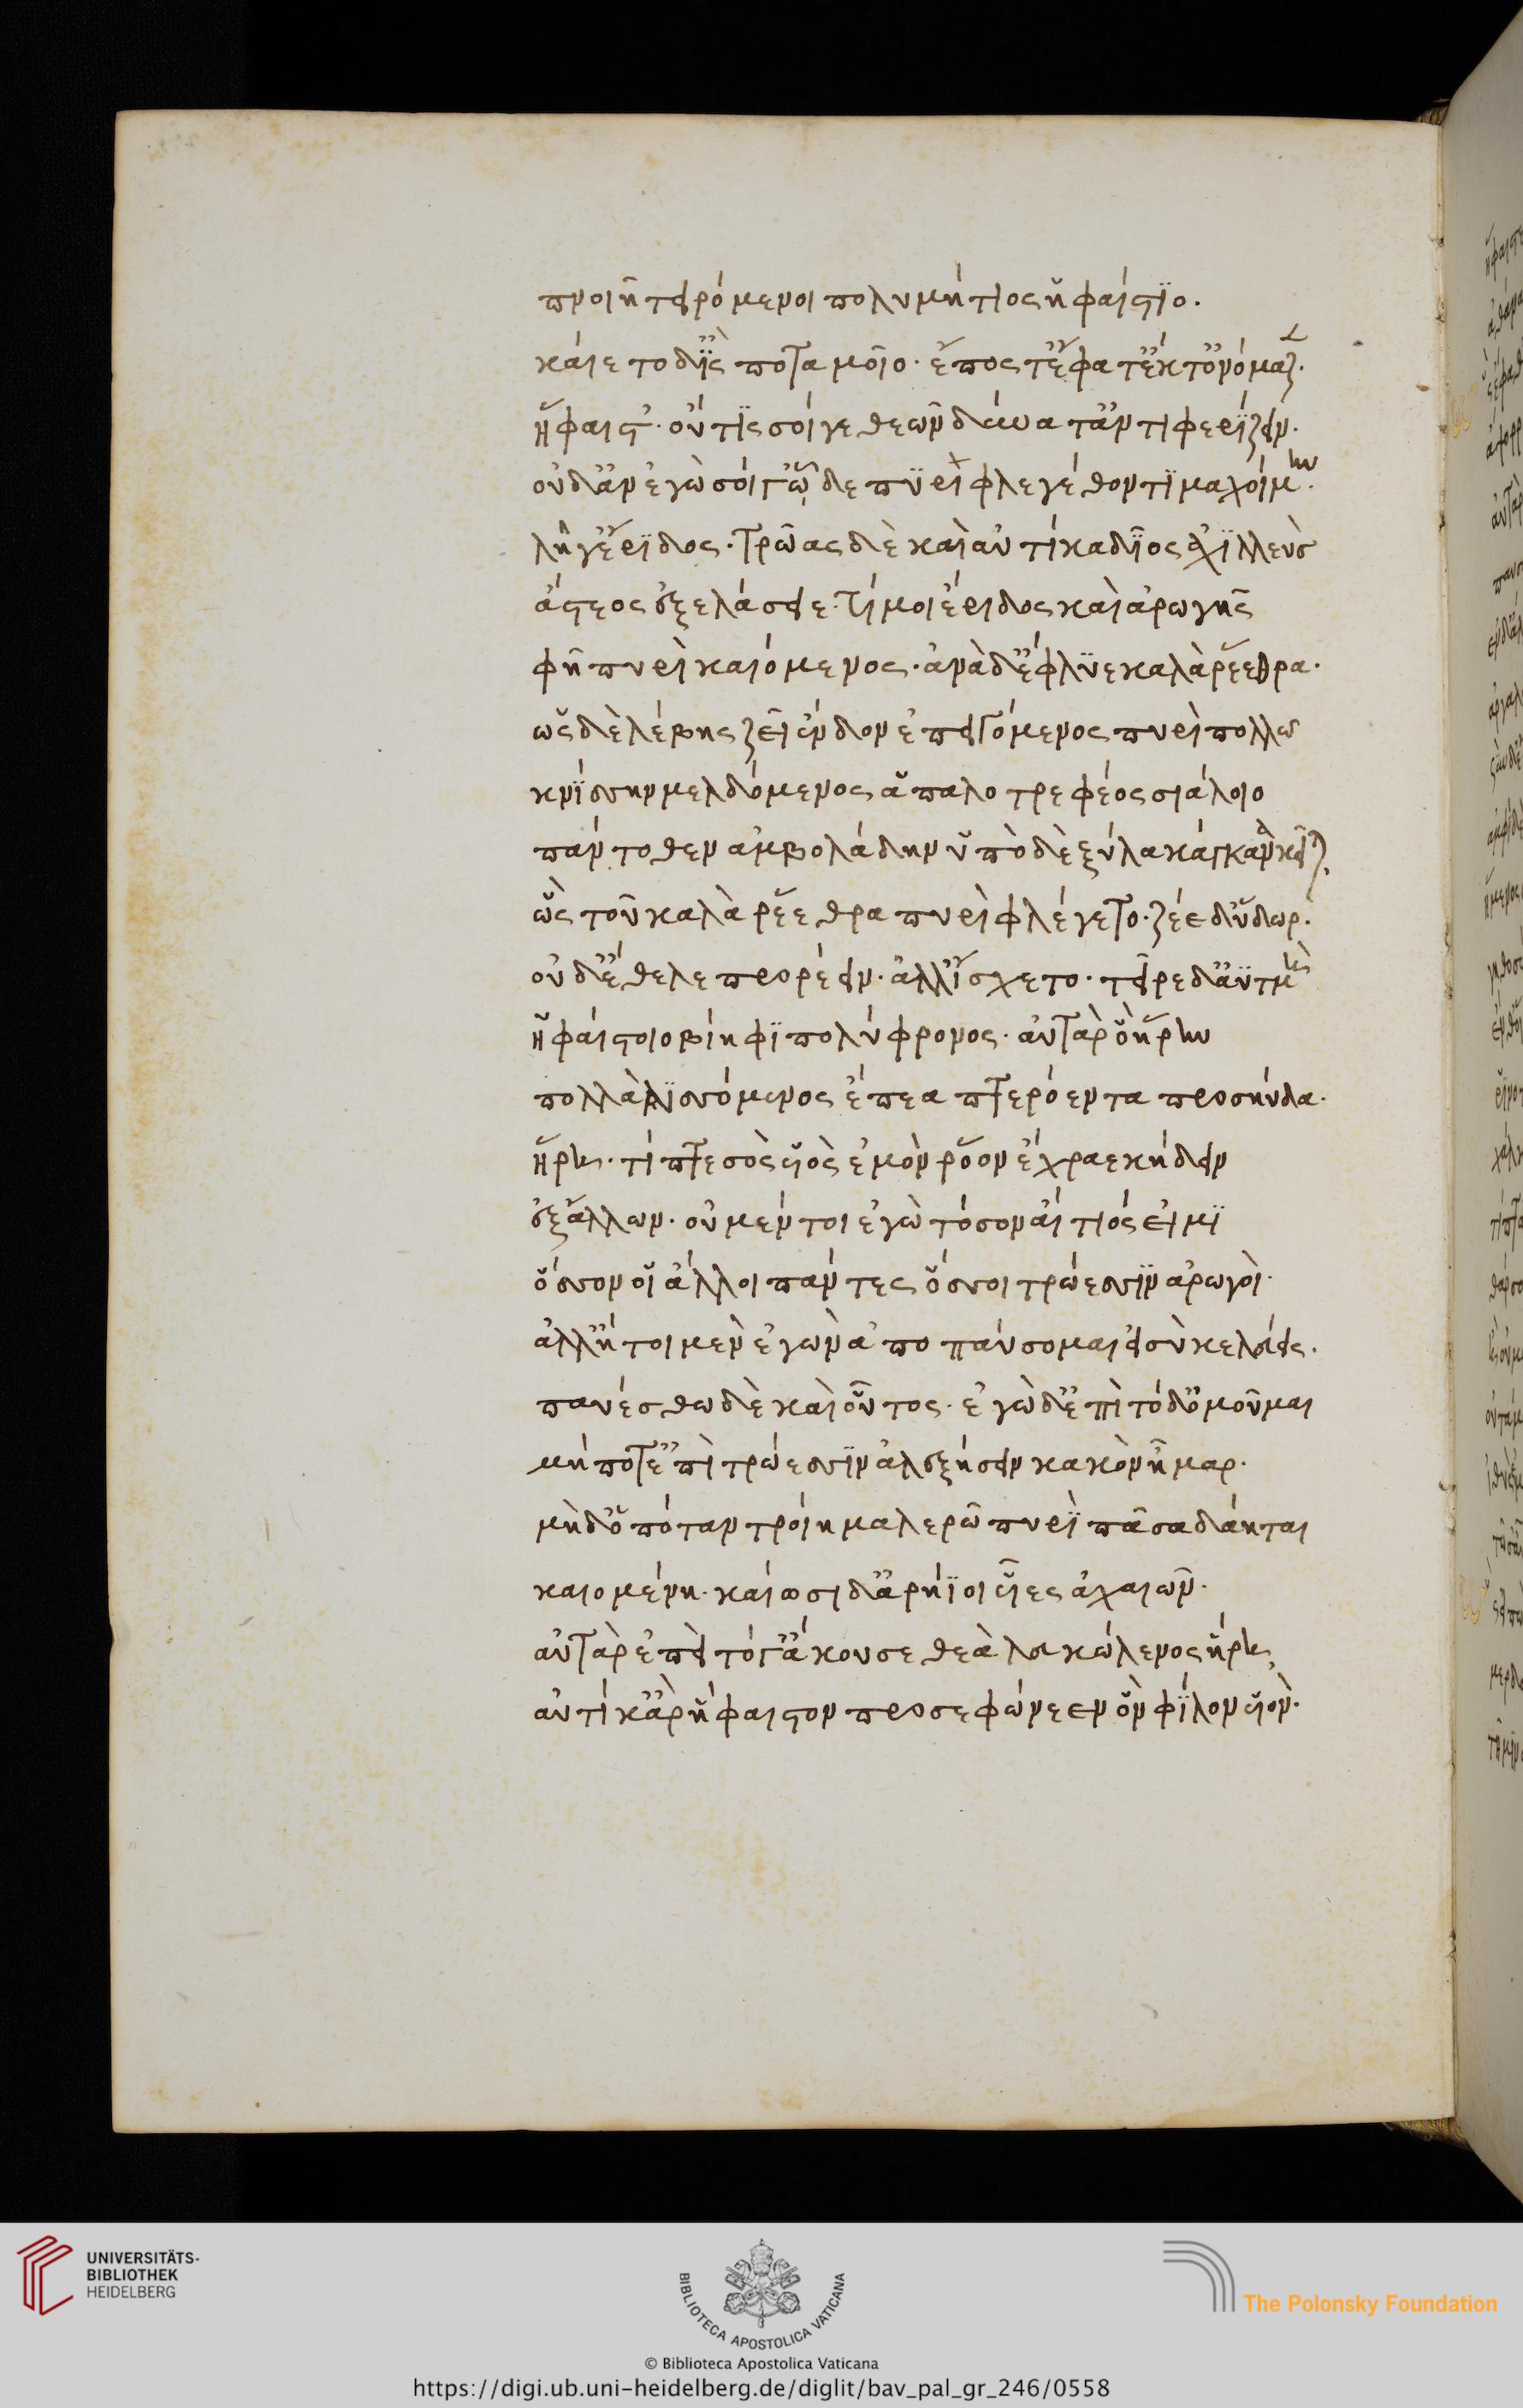 πνοιῆ τειρόμενοι πολυμήτιος ἡφαίστϊο.
καίετο δ' ῒς ποταμοῖο. ἔπος τ' ἔφατ' ἔκ τ' ὀνόμαζ.
ἥφαιστ'. οὔ τϊς σοί γε θεῶν δύνατ' ἀντιφερϊζειν.
οὐδ' ἂν ἐγὼ σοί γ' ὧδε πϋρὶ φλεγέθοντϊ μαχοίμην.
λῆγ' ἔρϊδος. τρῶας δὲ καὶ αὐτίκα δῖος ἀχϊλλεὺσ
ἄστεος ἐξελάσειε. τί μοι ἔριδος καὶ ἀρωγῆς
φῆ πυρὶ καιόμενος. ἀνὰ δ' ἔφλϋε καλὰ ῥέεθρα.
ὡς δὲ λέβης ζεῖ ἔνδον ἐπειγόμενος πυρὶ πολλω
κνϊσσην μελδόμενος ἁπαλοτρεφέος σιάλοιο
πάντοθεν ἀμβολάδην ὑπὸ δὲ ξύλα κάγκανα κεῖται
ὣς τοῦ καλὰ ῥέεθρα πυρὶ φλέγετο. ζέε δ' ὕδωρ.
οὐδ' ἔθελε προρέειν. ἀλλ' ἴσχετο. τεῖρε δ' ἀϋτμὴ
ἡφαίστοιο βίηφϊ πολύφρονος. αὐτὰρ ὃ ἥρην
πολλὰ λϊσσόμενος ἔπεα πτερόεντα προσηύδα.
ἥρη. τίπτε σὸς υἱὸς ἐμὸν ῥόον ἔχραε κήδειν
ἐξ ἄλλων. οὐ μέν τοι ἐγὼ τόσον αἴτιός εἰμϊ
ὅσσον οἱ ἄλλοι πάντες ὅσοι τρώεσσϊν ἀρωγοὶ.
ἀλλ' ἤτοι μὲν ἐγὼν ἀποπαύσομαι εἰ σὺ κελεύεις.
παυέσθω δὲ καὶ οὗτος. ἐγὼ δ' ἐπὶ τόδ' ὀμοῦμαι
μήποτ' ἐπὶ τρώεσσϊν ἀλεξήσειν κακὸν ἦμαρ.
μὴδ' ὁπόταν τροίη μαλερῶ πυρῒ πᾶσα δάηται
καιομένη. καίωσι δ' ἀρήϊοι υἷες ἀχαιῶν.
αὐτὰρ ἐπεὶ τόγ' ἄκουσε θεὰ λευκώλενος ἥρη
αὐτίκ' ἄρ' ἥφαιστον προσεφώνεεν ὃν φίλον υἱὸν.
UNIVERSITÄTS-
BIBLIOTHEK
HEIDELBERG
BIBLIOTECA APOSTOLICA VATICANA
The Polonsky Foundation
© Biblioteca Apostolica Vaticana
https://digi.ub.uni-heidelberg.de/diglit/bav_pal_gr_246/0558